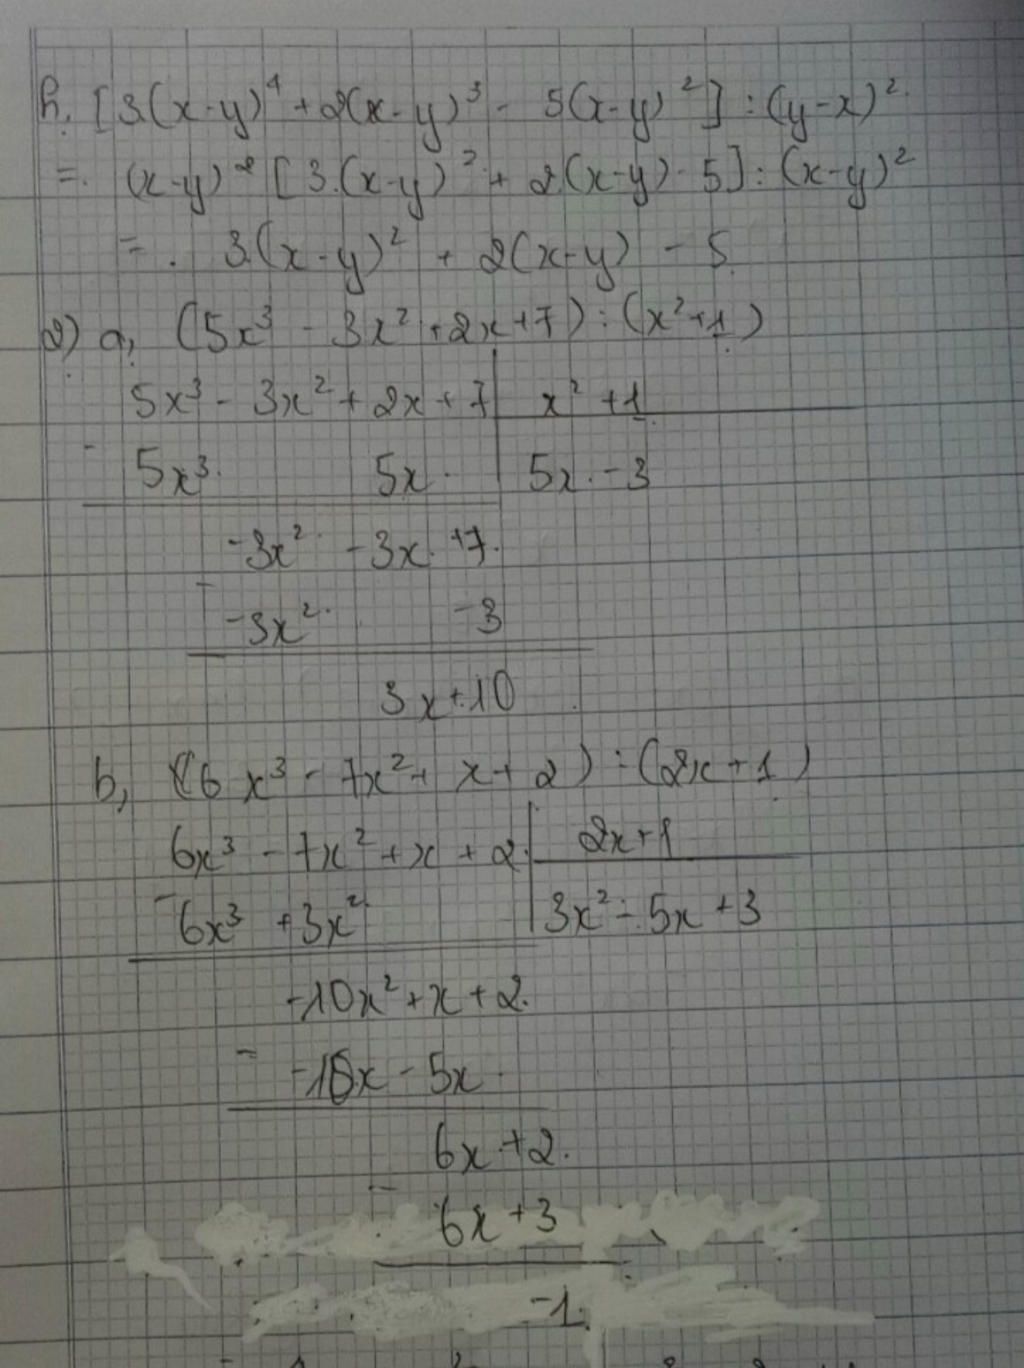 h. [3(x-y)⁴ + 2(x-y)³ - 5(x-y)²] : (y-x)²
= (x-y)² [3.(x-y)² + 2(x-y) - 5] : (x-y)²
= 3(x-y)² + 2(x-y) - 5
2) a, (5x³ - 3x² + 2x + 7) : (x² + 1)
5x³ - 3x² + 2x + 7 | x² + 1
- 5x³ 5x | 5x - 3
-3x² - 3x + 7
- -3x² -3
3x + 10
b, (6x³ - 7x² + x + 2) : (2x + 1)
6x³ - 7x² + x + 2 | 2x + 1
- 6x³ + 3x² | 3x² - 5x + 3
-10x² + x + 2
- -10x - 5x
6x + 2
- 6x + 3
-1